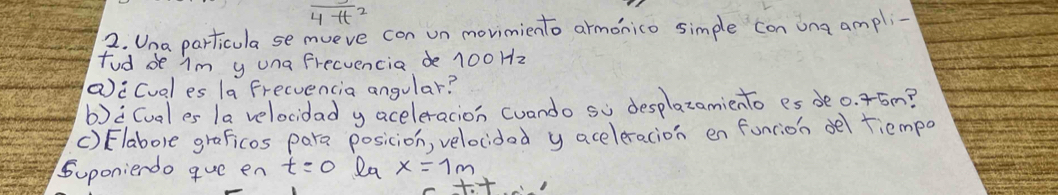 4π²
2. Una particula se mueve con un movimiento armónico simple con una ampli-
tud de 1m y una frecuencia de 100Hz
a) ¿Cual es la frecuencia angular?
b) ¿Cual es la velocidad y aceleración cuando su desplazamiento es de 0.75m?
c) Elabore graficos para posición, velocidad y aceleración en función del tiempo
Suponiendo que en t=0 la x=1m